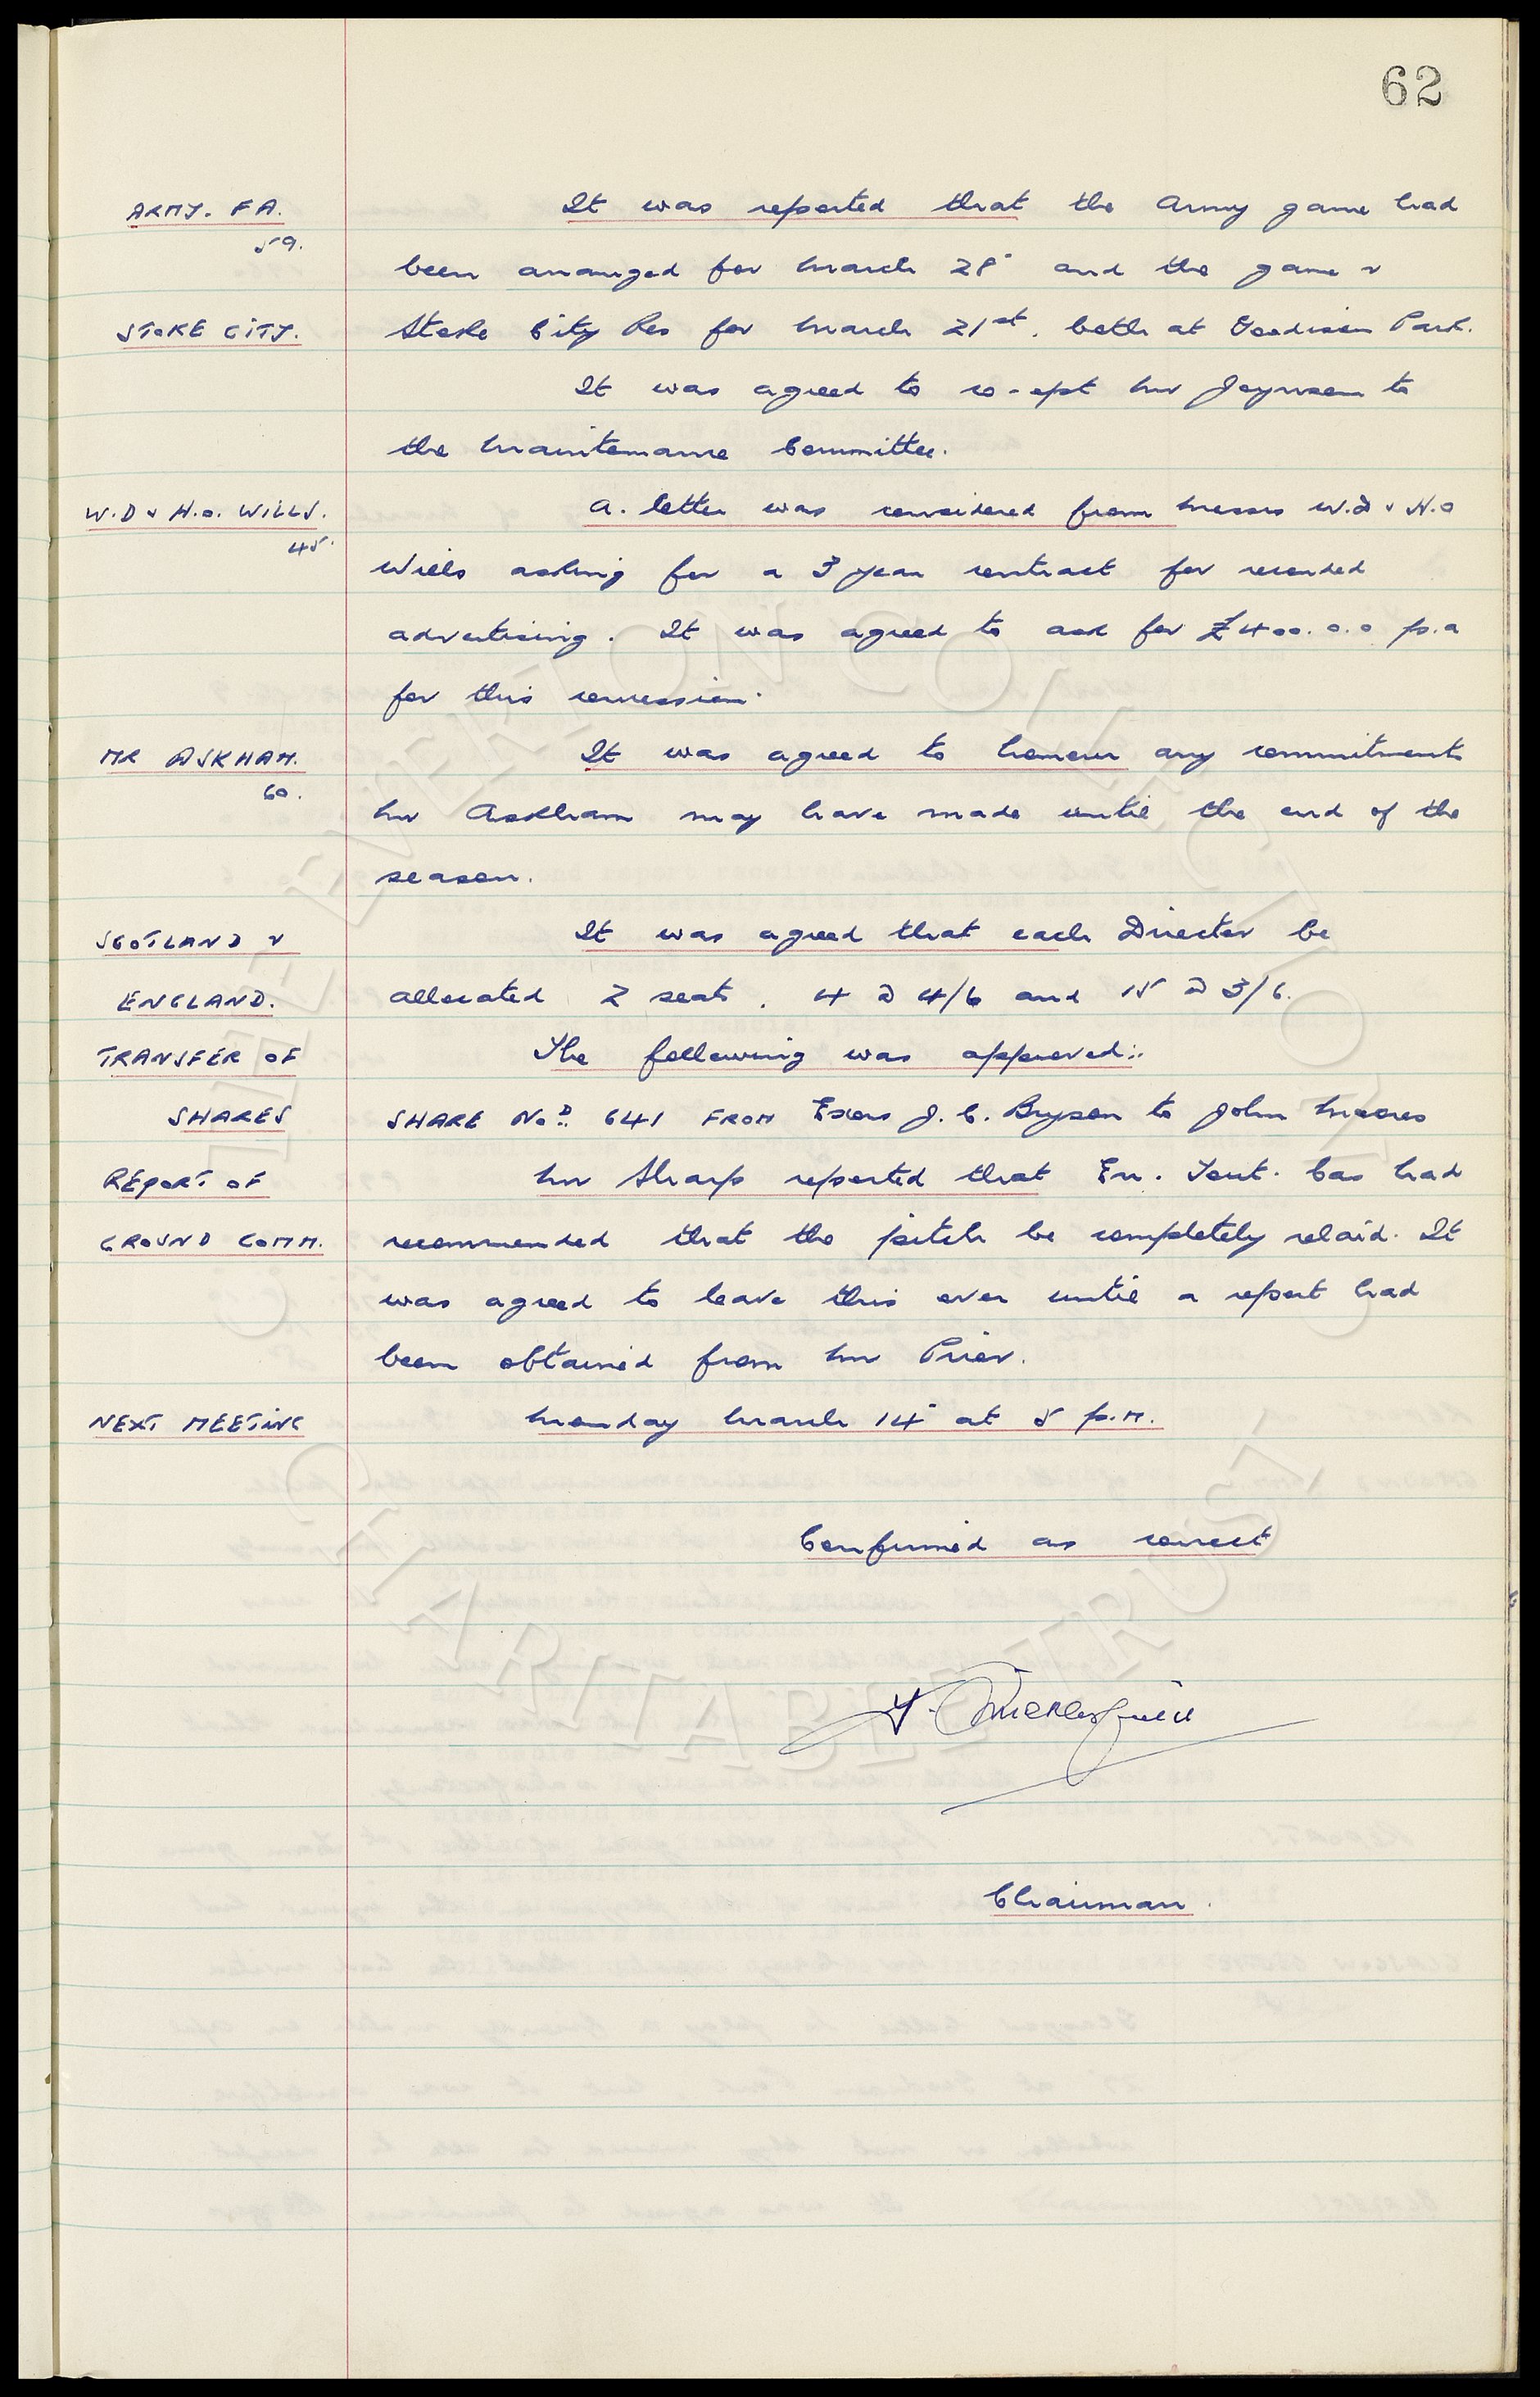 62
ARMY. F A. It was reported that the Army game had
59.
been arranged for March 28" and the game v
STOKE CITY. Stoke City Res for March 21st. both at Goodison Park.
It was agreed to co-opt Mr Joynson to
the Maintenance Committee.
W.D & H.O. WILLS. A. letter was considered from Messrs W.D & H.O
45.
Wills asking for a 3 year contract for recorded
advertising. It was agreed to ask for £400.0.0 p.a
for this concession.
MR ASKHAM. It was agreed to honour any commitments
60.
Mr Askham may have made until the end of the
season.
SCOTLAND v It was agreed that each Director be
ENGLAND. allocated 2 seats. 4 @ 4/6 and 15 @ 3/6.
TRANSFER OF The following was approved:-
SHARES SHARE No. 641 FROM Exors J. C. Bryson to John Moores
REPORT OF Mr Sharp reported that En. Tout. Cas had
GROUND COMM. recommended that the pitch be completely relaid. It
was agreed to leave this over until a report had
been obtained from Mr Prior.
NEXT MEETING Monday March 14" at 5 p.m.
Confirmed as correct
Chairman.
THE EVERTON COLLECTION
CHARITABLE TRUST